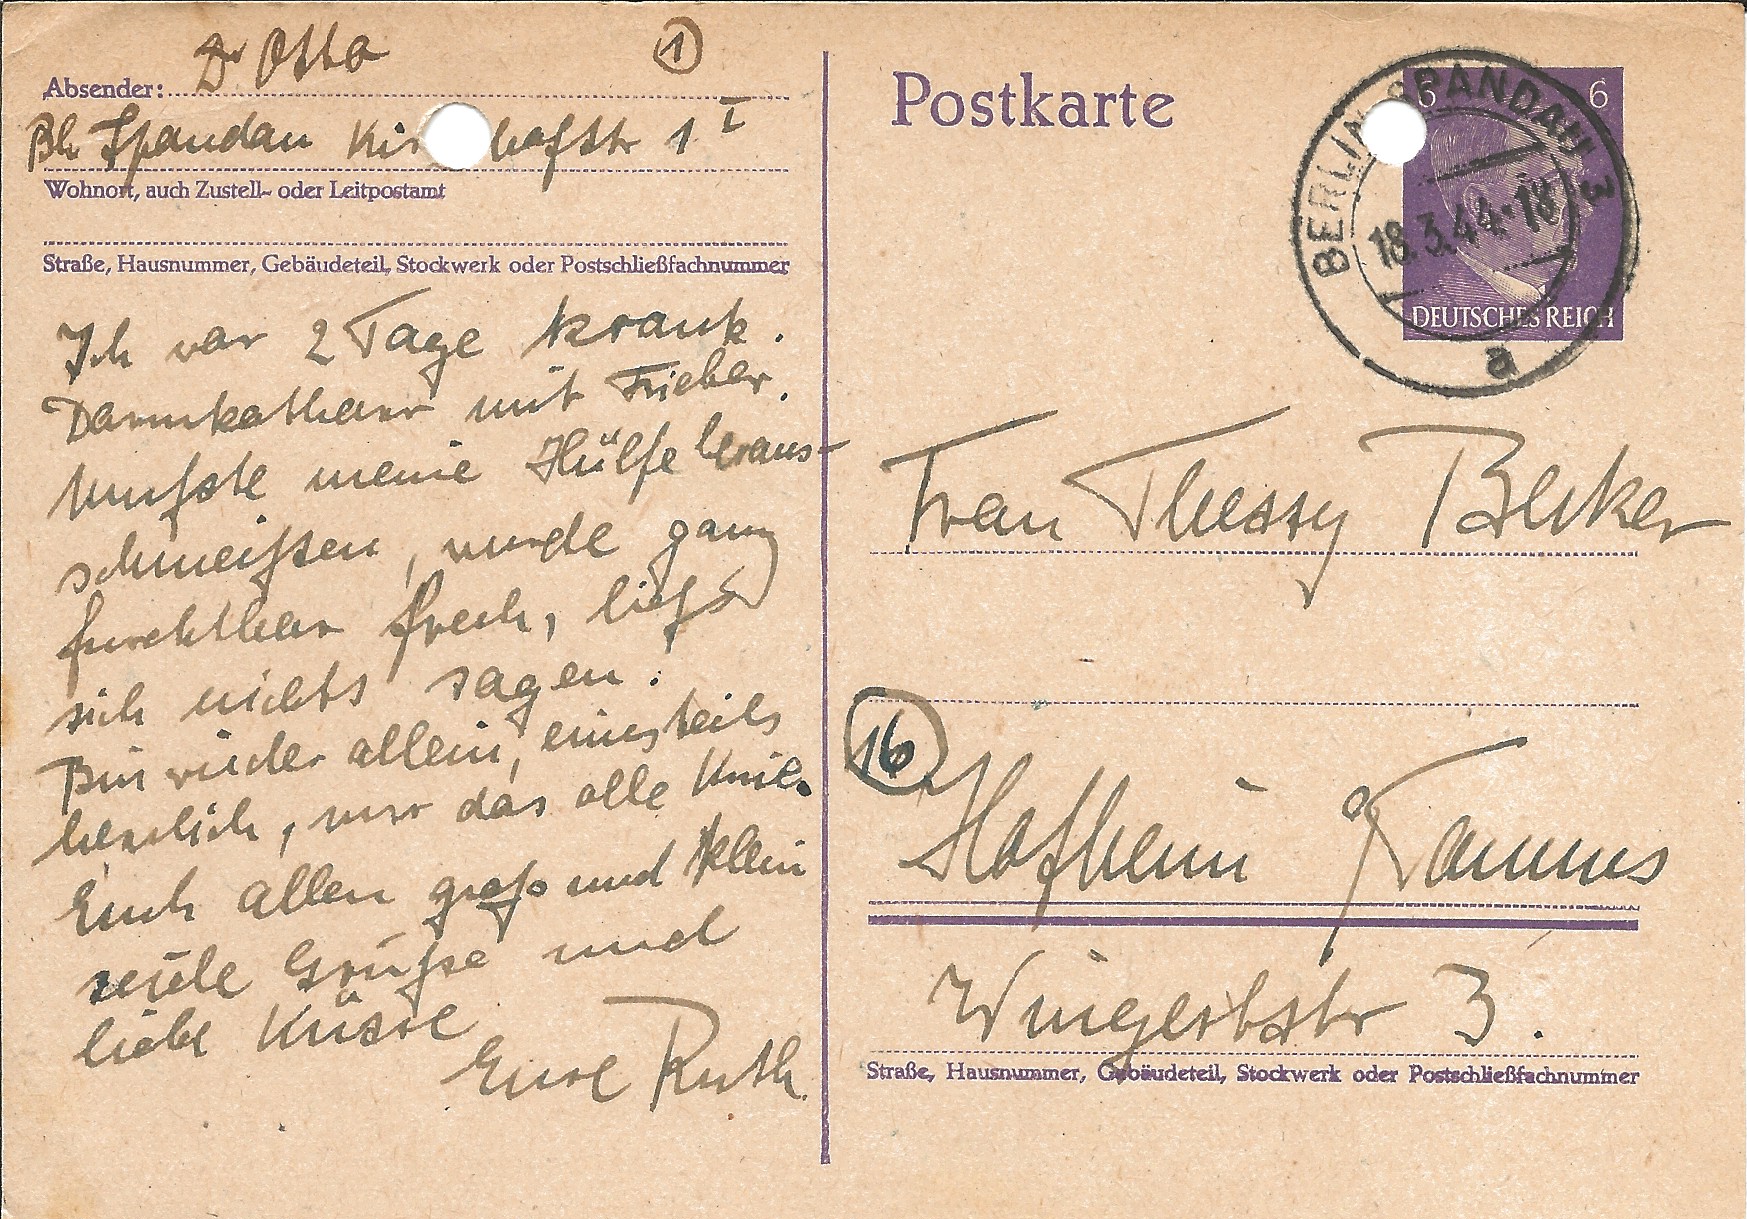 Dr Otto
1
Absender:
Bln Spandau Kir hofstr 1 I
Wohnort, auch Zustell- oder Leitpostamt
Straße, Hausnummer, Gebäudeteil, Stockwerk oder Postschließfachnummer
Ich war 2 Tage krank.
Darmkatharr mit Fieber.
Musste meine Hülfe heraus-
schmeißen, wurde ganz
furchtbar frech, ließ
sich nichts sagen.
Bin wieder allein, einesteils
herrlich, nur das alle Knie.
Euch allen groß und klein
viele Grüße und
liebe Küsse
Eure Ruth.
Postkarte
6 6
BERLIN-SPANDAU 3
18.3.44.-18
a
DEUTSCHES REICH
Frau Thessy
16
Hofheim Taunus
Wingertstr 3.
Straße, Hausnummer, Gebäudeteil, Stockwerk oder Postschließfachnummer